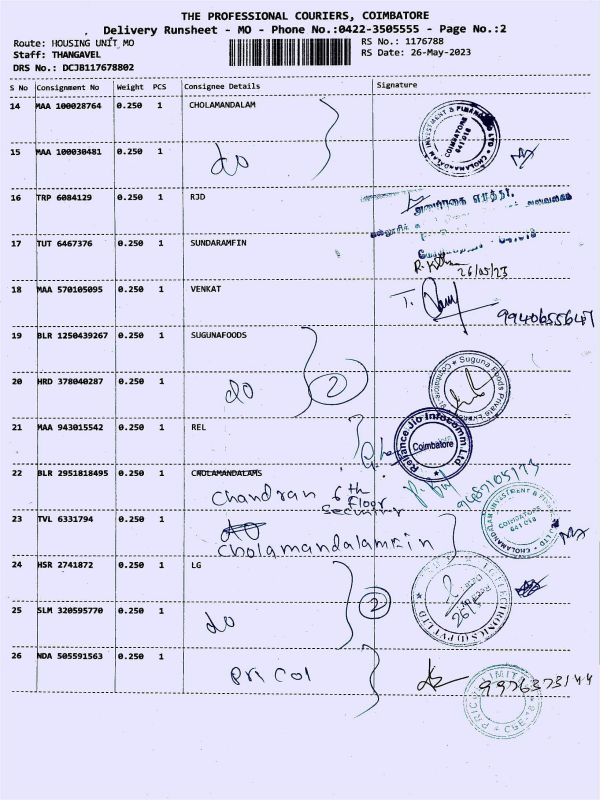 THE PROFESSIONAL COURIERS, COIMBATORE
Delivery Runsheet - MO - Phone No.:0422-3505555 - Page No.:2
Route: HOUSING UNIT MO
RS No.: 1176788
Staff: THANGAVEL
RS Date: 26-May-2023
DRS No.: DCJB117678802
S No Consignment No Weight PCS Consignee Details Signature
14 MAA 100028764 0.250 1 CHOLAMANDALAM
CHOLAMANDALAM INVESTMENT & FINANCE CO LTD
COIMBATORE
641 018
15 MAA 100030481 0.250 1 do
16 TRP 6084129 0.250 1 RJD
17 TUT 6467376 0.250 1 SUNDARAMFIN
26/05/23
18 MAA 570105095 0.250 1 VENKAT
9940655647
19 BLR 1250439267 0.250 1 SUGUNAFOODS
20 HRD 378040287 0.250 1 do 2
Suguna Foods Private
21 MAA 943015542 0.250 1 REL
Reliance Jio Infocomm Ltd.
Coimbatore
22 BLR 2951818495 0.250 1 CHOLAMANDALAMS
Chandran 6th Floor Security
9487105179
23 TVL 6331794 0.250 1 do
Cholamandalamfin
CHOLAMANDALAM INVESTMENT & FINANCE CO LTD
COIMBATORE
641 018
24 HSR 2741872 0.250 1 LG
LG ELECTRONICS (I) PVT LTD
25 SLM 320595770 0.250 1 do 2
26 NDA 505591563 0.250 1 Pricol
9976373144
PRICOL LIMITED
CBE-18